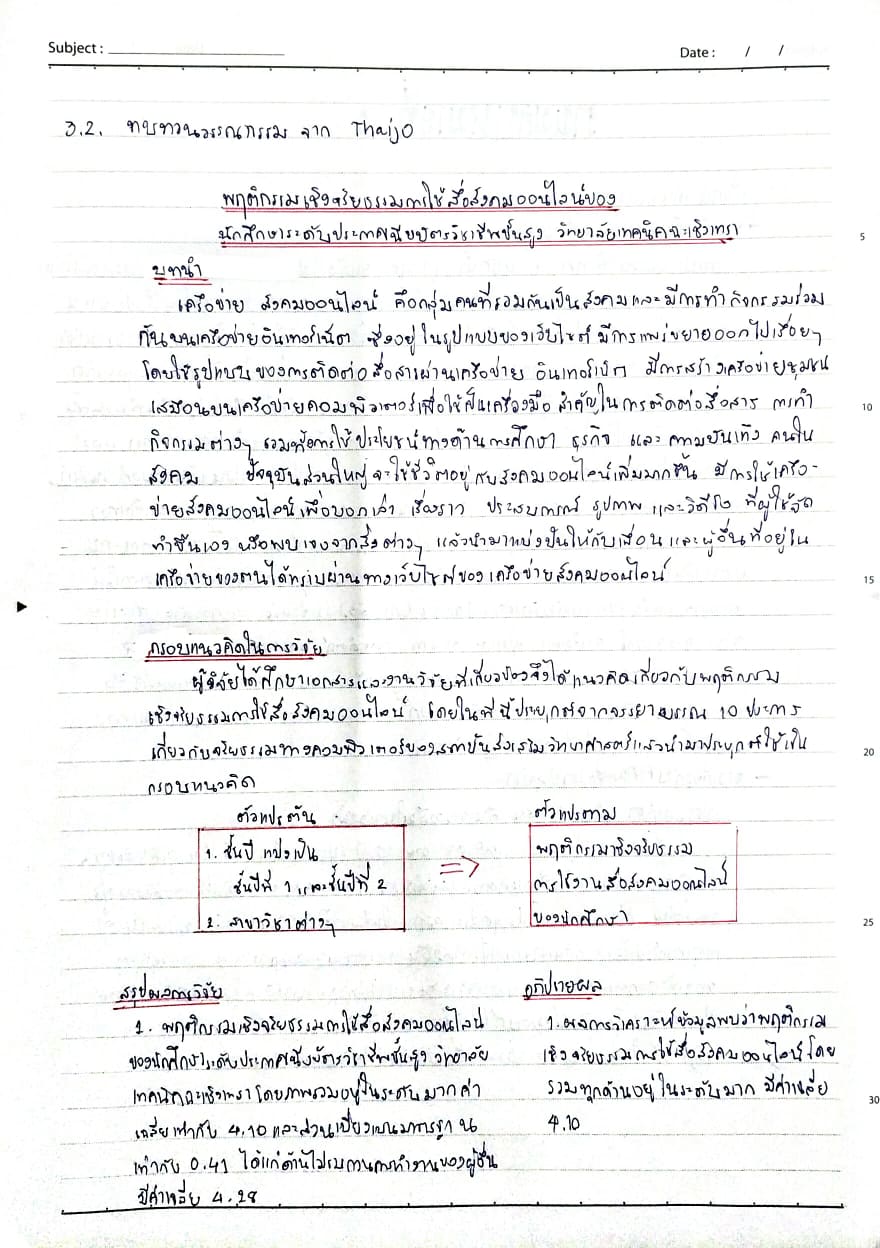 Subject :
Date : / /
3.2. ทบทวนวรรณกรรม จาก ThaiJO
พฤติกรรมเชิงจริยธรรมการใช้สื่อสังคมออนไลน์ของ
นักศึกษาระดับประกาศนียบัตรวิชาชีพชั้นสูง วิทยาลัยเทคนิคฉะเชิงเทรา
5
บทนำ
เครือข่าย สังคมออนไลน์ คือกลุ่มคนที่รวมกันเป็นสังคมและมีการทำกิจกรรมร่วม
กันบนเครือข่ายอินเทอร์เน็ต ซึ่งอยู่ในรูปแบบของเว็บไซต์ มีการแพร่ขยายออกไปเรื่อยๆ
โดยใช้รูปแบบของการติดต่อสื่อสารผ่านเครือข่าย อินเทอร์เน็ต มีการสร้างเครือข่ายชุมชน
เสมือนบนเครือข่ายคอมพิวเตอร์เพื่อใช้เป็นเครื่องมือ สำคัญในการติดต่อสื่อสาร การทำ
10
กิจกรรมต่างๆ รวมทั้งการใช้ประโยชน์ทางด้านการศึกษา ธุรกิจ และ ความบันเทิง คนใน
สังคม ปัจจุบันส่วนใหญ่จะใช้ชีวิตอยู่กับสังคมออนไลน์เพิ่มมากขึ้น มีการใช้เครือ-
ข่ายสังคมออนไลน์เพื่อบอกเล่า เรื่องราว ประสบการณ์ รูปภาพ และวิดีโอ ที่ผู้ใช้จัด
ทำขึ้นเอง หรือพบเจอจากสิ่งต่างๆ แล้วนำมาแบ่งปันให้กับเพื่อน และผู้อื่นที่อยู่ใน
เครือข่ายของตนได้ทราบผ่านทางเว็บไซต์ของเครือข่ายสังคมออนไลน์
15
กรอบแนวคิดในการวิจัย
ผู้วิจัยได้ศึกษาเอกสารและงานวิจัยที่เกี่ยวข้องจึงได้แนวคิดเกี่ยวกับพฤติกรรม
เชิงจริยธรรมการใช้สื่อสังคมออนไลน์ โดยในที่นี้ประยุกต์จากจรรยาบรรณ 10 ประการ
เกี่ยวกับจริยธรรมทางคอมพิวเตอร์ของสถาบันส่งเสริมวิทยาศาสตร์แล้วนำมาประยุกต์ใช้เป็น
20
กรอบแนวคิด
ตัวแปรต้น
1. ชั้นปี แบ่งเป็น
ชั้นปีที่ 1 และชั้นปีที่ 2
2. สาขาวิชาต่างๆ
=>
ตัวแปรตาม
พฤติกรรมเชิงจริยธรรม
การใช้งานสื่อสังคมออนไลน์
ของนักศึกษา
25
สรุปผลการวิจัย
1. พฤติกรรมเชิงจริยธรรมการใช้สื่อสังคมออนไลน์
ของนักศึกษาระดับประกาศนียบัตรวิชาชีพชั้นสูง วิทยาลัย
เทคนิคฉะเชิงเทรา โดยภาพรวมอยู่ในระดับมาก ค่า
เฉลี่ยเท่ากับ 4.10 และส่วนเบี่ยงเบนมาตรฐาน
เท่ากับ 0.41 ได้แก่ด้านไม่รบกวนการทำงานของผู้อื่น
มีค่าเฉลี่ย 4.28
อภิปรายผล
1. ผลการวิเคราะห์ข้อมูลพบว่าพฤติกรรม
เชิงจริยธรรมการใช้สื่อสังคมออนไลน์โดย
รวมทุกด้านอยู่ในระดับมาก มีค่าเฉลี่ย
4.10
30